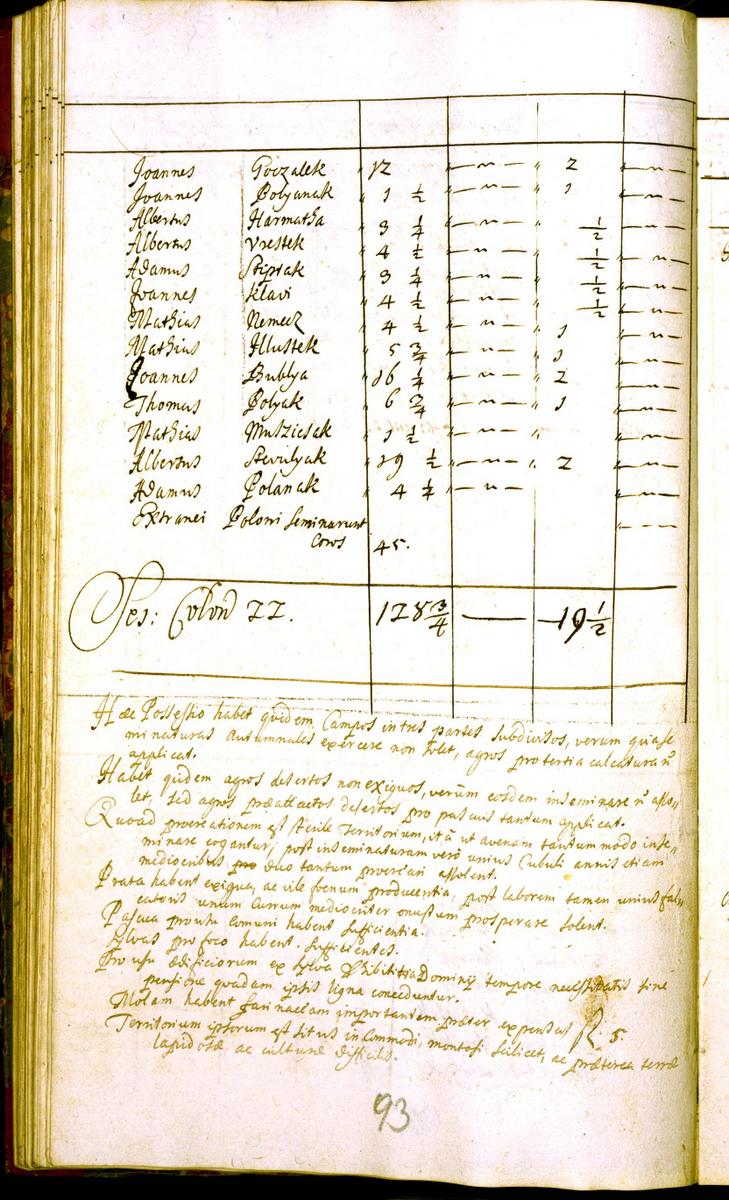 Joannes Goczalek 12 " — " — " 2 " — " —
Joannes Polyanak " 1 1/2 " — " — " 1 " — " —
Albertus Harmatha " 3 1/4 " — " — " 1/2 " — " —
Albertus Vrestek " 4 1/2 " — " — " 1/2 " — " —
Adamus Stiptak " 3 1/4 " — " — " 1/2 " — " —
Joannes Klavi " 4 1/2 " — " — " 1/2 " — " —
Mathias Nemecz " 4 1/2 " — " — " 1 " — " —
Mathias Illustek " 5 3/4 " — " — " 1 " — " —
Joannes Bublya " 16 1/4 " — " — " 2 " — " —
Thomas Polyak " 6 3/4 " — " — " 1 " — " —
Mathias Muszicsak " 1 1/2 " — " — " " — " —
Albertus " 19 1/2 " — " — " 2 " — " —
Adamus Polanak 4 " — " — " — " —
Extranei Poloni Seminarunt
Coros 45.
Ses: Colon 22. 128 3/4 — 19 1/2
Hæc Possessio habet quidem Campos in tres partes subdivisos, verum quia se
minaturas Autumnales exercere non solet, agros pro tertia calcatura
applicat.
Habet quidem agros desertos non exiguos, verùm eosdem inseminare aſso„
let, sed agros præattactos desertos pro pascuis tantum applicat.
Quoad procreationem est sterile Territorium, ità ut avenam tantummodo inse„
minare cogantur, post inseminaturam verò unius Cubuli annis etiam
mediocribus duo tantum procreari assolent.
Prata habent exigua, ac vile foenum producentia, post laborem tamen unius fal„
catoris unum Currum mediocriter onustum prosperare solent.
Pascua pro usu Comuni habent sufficientia.
Sylvas pro foco habent sufficientes.
Pro usu ædificiorum ex sylva Dominij tempore necessitatis sine
pensione quadam ipsis ligna conceduntur.
Molam habent farinaceam importantem præter expensas fl. 5.
Territorium ipsorum est situs incommodi, montosi scilicet, ac præterea terræ
lapidosæ, ac culturæ difficilis.
93